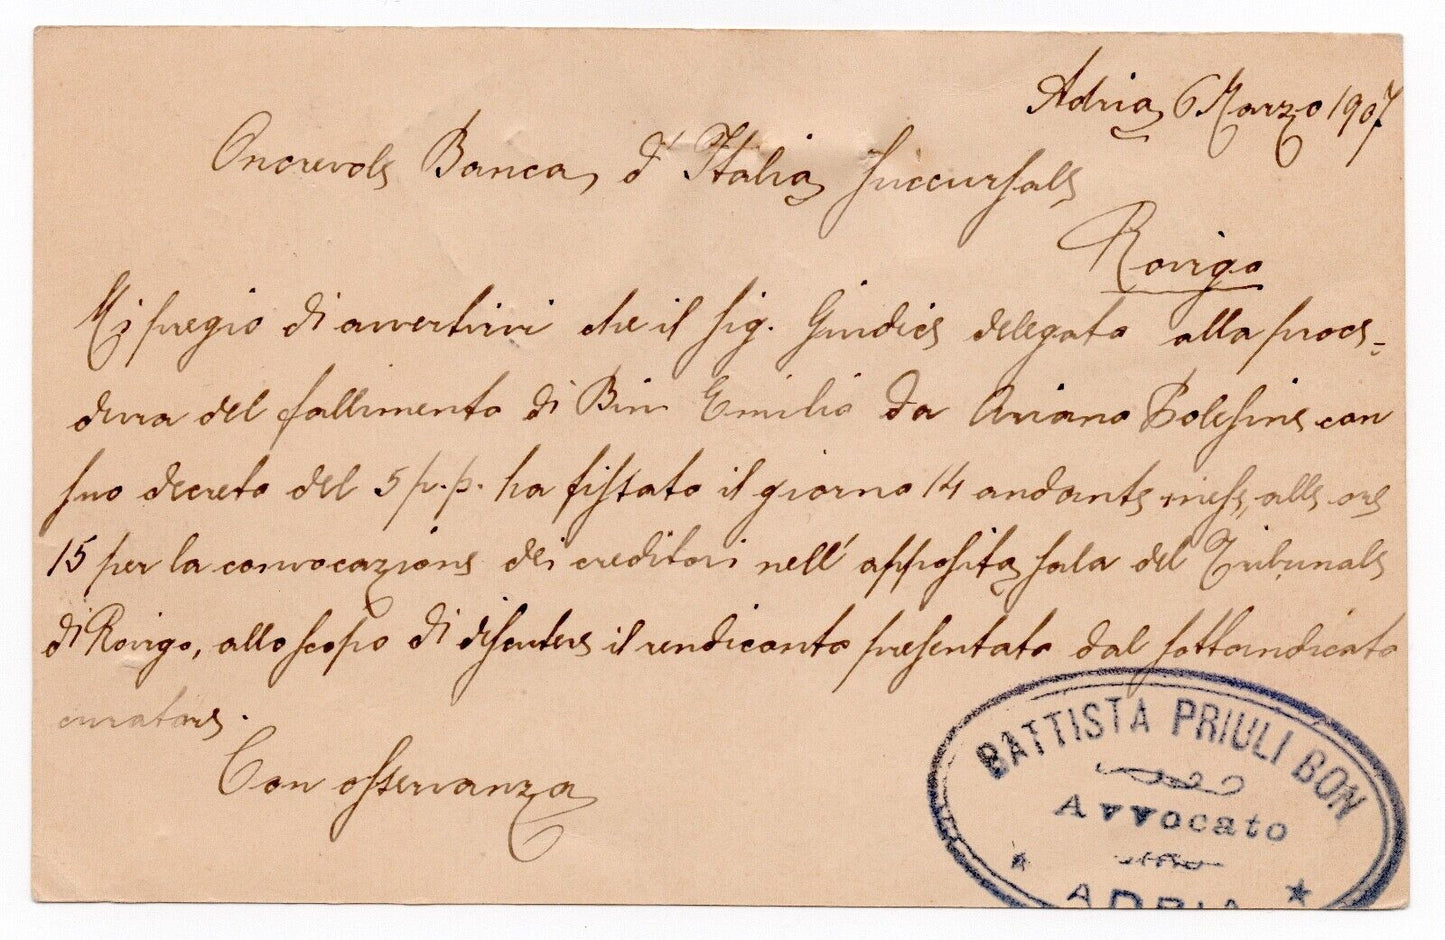 Adria 6 Marzo 1907
Onorevole Banca d'Italia succursale
Rovigo
Mi pregio di avvertirvi che il sig. Giudice delegato alla proce-
dura del fallimento di Bin Emilio da Ariano Polesine con
suo decreto del 5 p.p. ha fissato il giorno 14 andante mese, alle ore
15 per la convocazione dei creditori nell' apposita sala del Tribunale
di Rovigo, allo scopo di discutere il rendiconto presentato dal sottoindicato
curatore.
Con osservanza
BATTISTA PRIULI BON
Avvocato
ADRIA